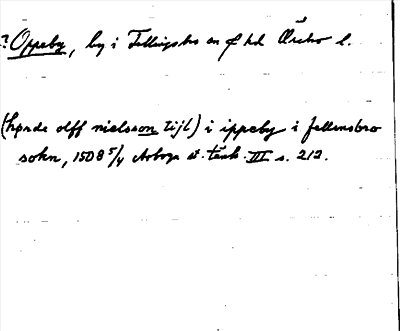 ? Oppeby, by i Fellingsbro sn o hd Örebro l.
(hørde olff nielsson tijl) i ippeby i fellinsbro
sokn, 1508 5/4 Arboga st. tänk. III s. 212.